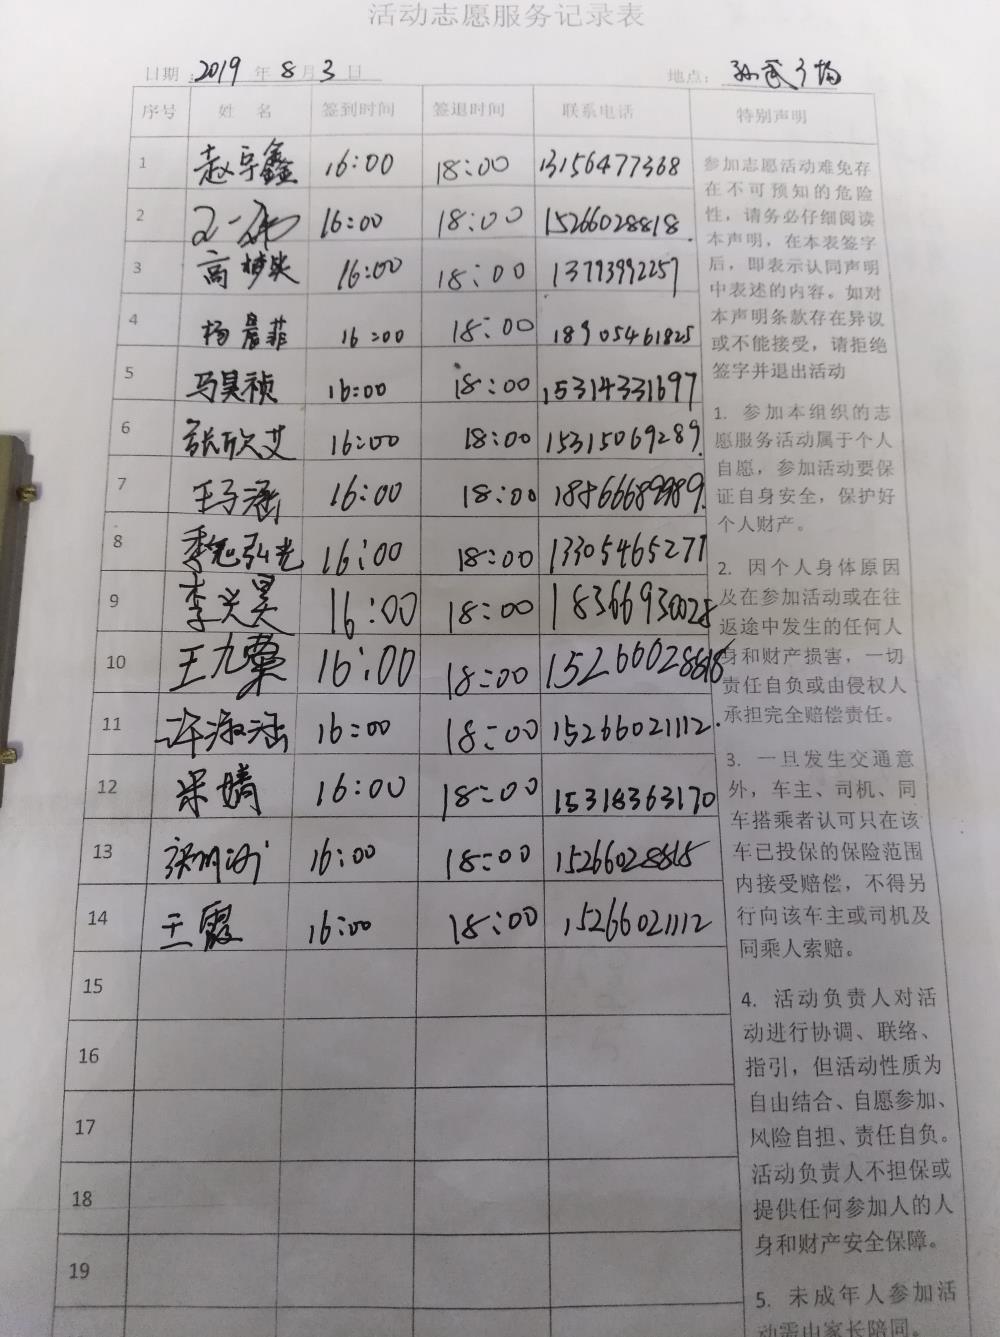 活动志愿服务记录表
日期：2019年8月3日 地点：孙武广场
序号 姓 名 签到时间 签退时间 联系电话 特别声明
1 赵宇鑫 16:00 18:00 13156477368
2 16:00 18:00 15266028818.
3 高梦笑 16:00 18:00 13793992257
4 杨晨菲 16:00 18:00 18905461825
5 马昊祯 16:00 18:00 15314331697
6 张欣艾 16:00 18:00 15315069289.
7 王子涵 16:00 18:00 18866689989.
8 季冠弘光 16:00 18:00 13305465277
9 李兴昊 16:00 18:00 18366930028
10 王九粟 16:00 18:00 15266028618
11 许淑涵 16:00 18:00 15266021112.
12 宋婧 16:00 18:00 15318363170
13 16:00 18:00 15266028618
14 王霞 16:00 18:00 15266021112
15
16
17
18
19
参加志愿活动难免存
在不可预知的危险
性，请务必仔细阅读
本声明，在本表签字
后，即表示认同声明
中表述的内容。如对
本声明条款存在异议
或不能接受，请拒绝
签字并退出活动
1. 参加本组织的志
愿服务活动属于个人
自愿，参加活动要保
证自身安全，保护好
个人财产。
2. 因个人身体原因
及在参加活动或在往
返途中发生的任何人
身和财产损害，一切
责任自负或由侵权人
承担完全赔偿责任。
3. 一旦发生交通意
外，车主、司机、同
车搭乘者认可只在该
车已投保的保险范围
内接受赔偿，不得另
行向该车主或司机及
同乘人索赔。
4. 活动负责人对活
动进行协调、联络、
指引，但活动性质为
自由结合、自愿参加、
风险自担、责任自负。
活动负责人不担保或
提供任何参加人的人
身和财产安全保障。
5. 未成年人参加活
动需由家长陪同。